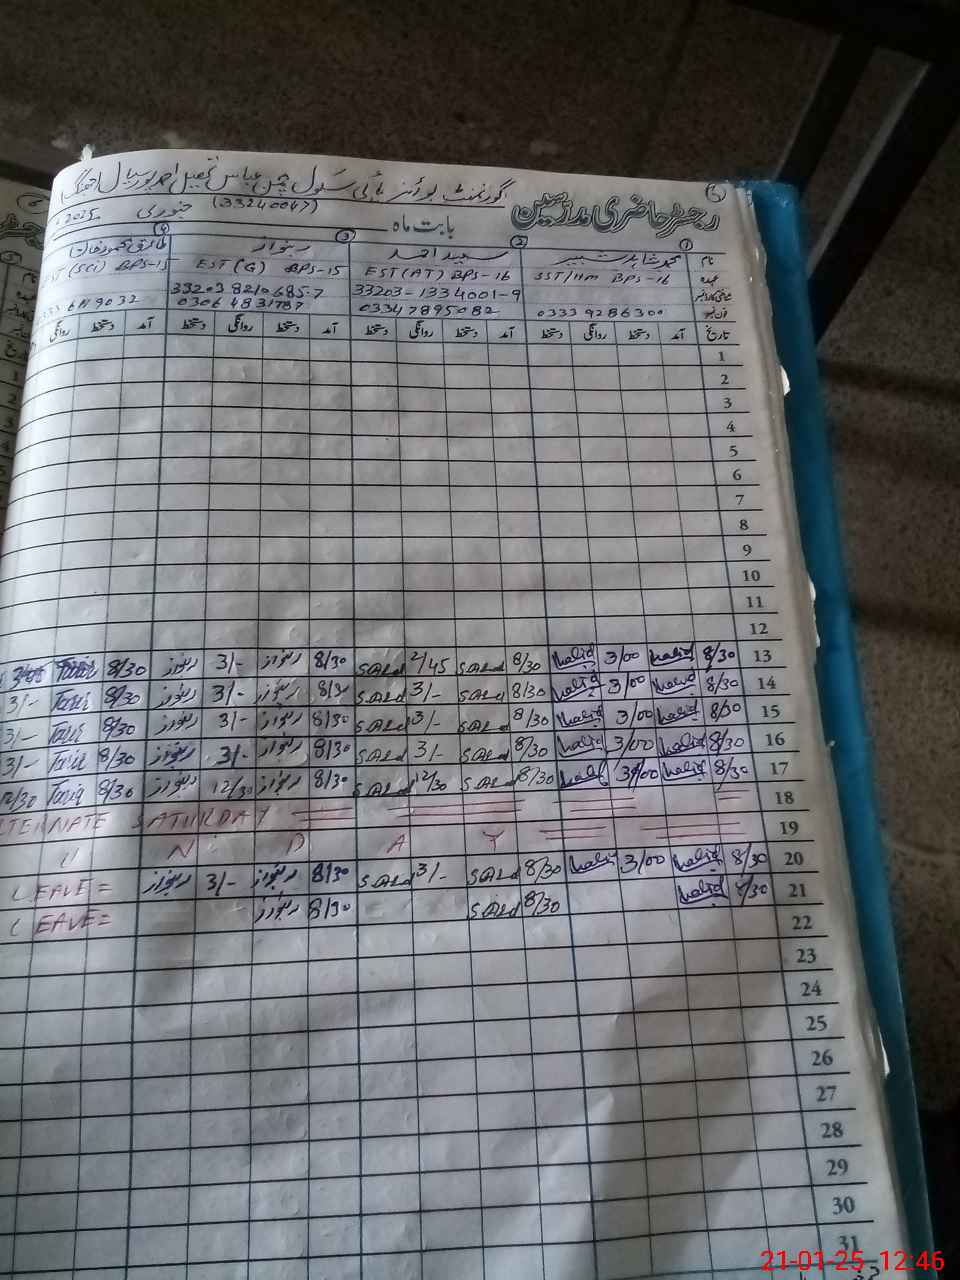 گورنمنٹ بوائز ہائی سکول چمن عباس تحصیل احمد پور سیال جھنگ
رجسٹر حاضری مدرسین
(33240047)
بابت ماہ جنوری 2025ء
نام 1 محمد شاہد شبیر 2 سعید احمد 3 ربنواز 4 طارق محمود
عہدہ SST/HM BPS-16 EST(AT) BPS-16 EST(G) BPS-15 EST(SCi) BPS-15
33203-1334001-9 33203 8210685-7
فون نمبر 0333 9286300 03347895082 0306 4831787 333 6119032
تاریخ آمد دستخط روانگی دستخط آمد دستخط روانگی دستخط آمد دستخط روانگی دستخط آمد دستخط روانگی
1
2
3
4
5
6
7
8
9
10
11
12
13 8/30 3/00 8/30 Saeed 2/45 Saeed 8/30 ربنواز 3/- ربنواز 8/30 Tariq
14 8/30 3/00 8/30 Saeed 3/- Saeed 8/30 ربنواز 3/- ربنواز 8/30 Tariq 3/-
15 8/30 3/00 8/30 Saeed 3/- Saeed 8/30 ربنواز 3/- ربنواز 8/30 Tariq 3/-
16 8/30 3/00 8/30 Saeed 3/- Saeed 8/30 ربنواز 3/- ربنواز 8/30 Tariq 3/-
17 8/30 3/00 8/30 Saeed 12/30 Saeed 8/30 ربنواز 12/30 ربنواز 8/30 Tariq 12/30
18 LTERNATE SATURDAY
19 U N D A Y
20 8/30 3/00 8/30 Saeed 3/- Saeed 8/30 ربنواز 3/- ربنواز LEAVE =
21 8/30 8/30 Saeed 8/30 ربنواز LEAVE =
22
23
24
25
26
27
28
29
30
31
21-01-25 12:46